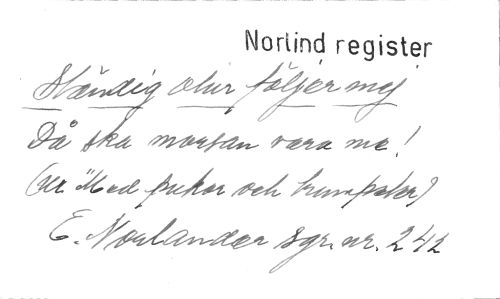 Norlind register
Ständig otur följer mej
Då ska morsan vara me!
(ur "Med pukor och trumpeter)
E. Norlander sgr. nr. 242